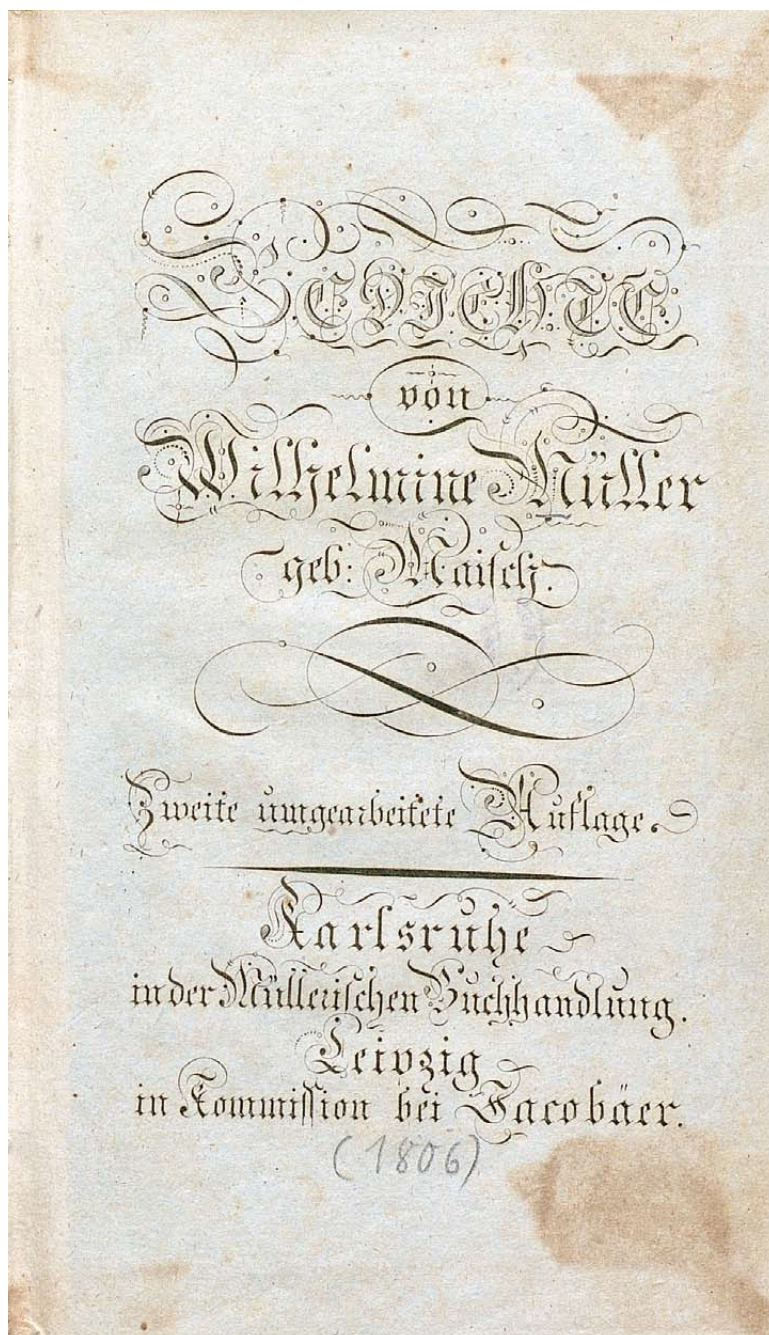 GEDICHTE
von
Wilhelmine Müller
geb: Maisch.
Zweite umgearbeitete Auflage.
Karlsruhe
in der Müllerischen Buchhandlung.
Leipzig
in Kommission bei Jacobäer.
(1806)